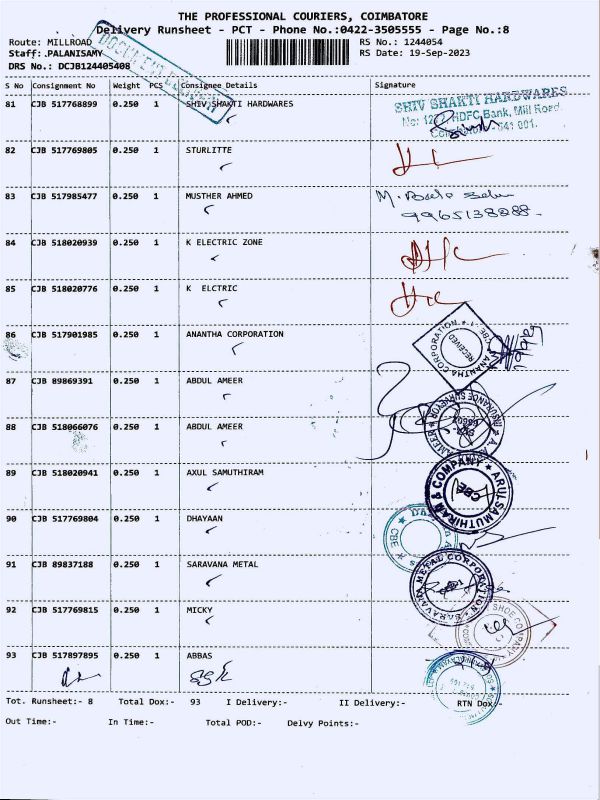 THE PROFESSIONAL COURIERS, COIMBATORE
Delivery Runsheet - PCT - Phone No.:0422-3505555 - Page No.:8
Route: MILLROAD RS No.: 1244054
Staff:.PALANISAMY RS Date: 19-Sep-2023
DRS No.: DCJB124405408
S No Consignment No Weight PCS Consignee Details Signature
81 CJB 517768899 0.250 1 SHIV SHAKTI HARDWARES
SHIV SHAKTI HARDWARES
HDFC Bank, Mill Road
82 CJB 517769805 0.250 1 STURLITTE
83 CJB 517985477 0.250 1 MUSTHER AHMED
9965138288
84 CJB 518020939 0.250 1 K ELECTRIC ZONE
85 CJB 518020776 0.250 1 K ELCTRIC
86 CJB 517901985 0.250 1 ANANTHA CORPORATION
ANANTHA CORPORATION CBE
RECEIVED
87 CJB 89869391 0.250 1 ABDUL AMEER
88 CJB 518066076 0.250 1 ABDUL AMEER
INSURANCE SURVEYOR
89 CJB 518020941 0.250 1 AXUL SAMUTHIRAM
ARULSAMUTHIRAN & COMPANY
CBE
90 CJB 517769804 0.250 1 DHAYAAN
CBE
91 CJB 89837188 0.250 1 SARAVANA METAL
SARAVANA METAL CORPORATION
92 CJB 517769815 0.250 1 MICKY
SHOE COMPANY
93 CJB 517897895 0.250 1 ABBAS
Tot. Runsheet:- 8 Total Dox:- 93 I Delivery:- II Delivery:- RTN Dox:-
Out Time:- In Time:- Total POD:- Delvy Points:-